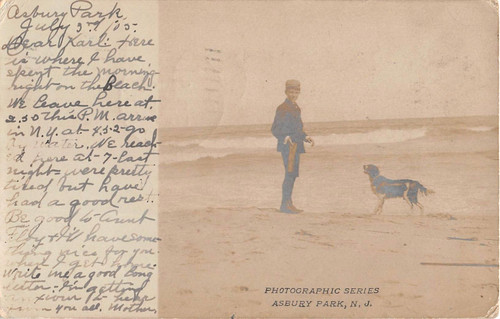 Asbury Park.
July 3rd, '05.
Dear Karl: Here
is where I have
spent the morning
right on the Beach.
We leave here at
2.30 this P.M. arrive
in N.Y. at 4.52 - go
We reach-
ed here at 7- last
night - were pretty
tired but have
had a good rest.
Be good to Aunt
& I'll have some-
thing nice for you
when I get home.
Write me a good long
letter. I'm getting
to
you all. Mother.
PHOTOGRAPHIC SERIES
ASBURY PARK, N. J.